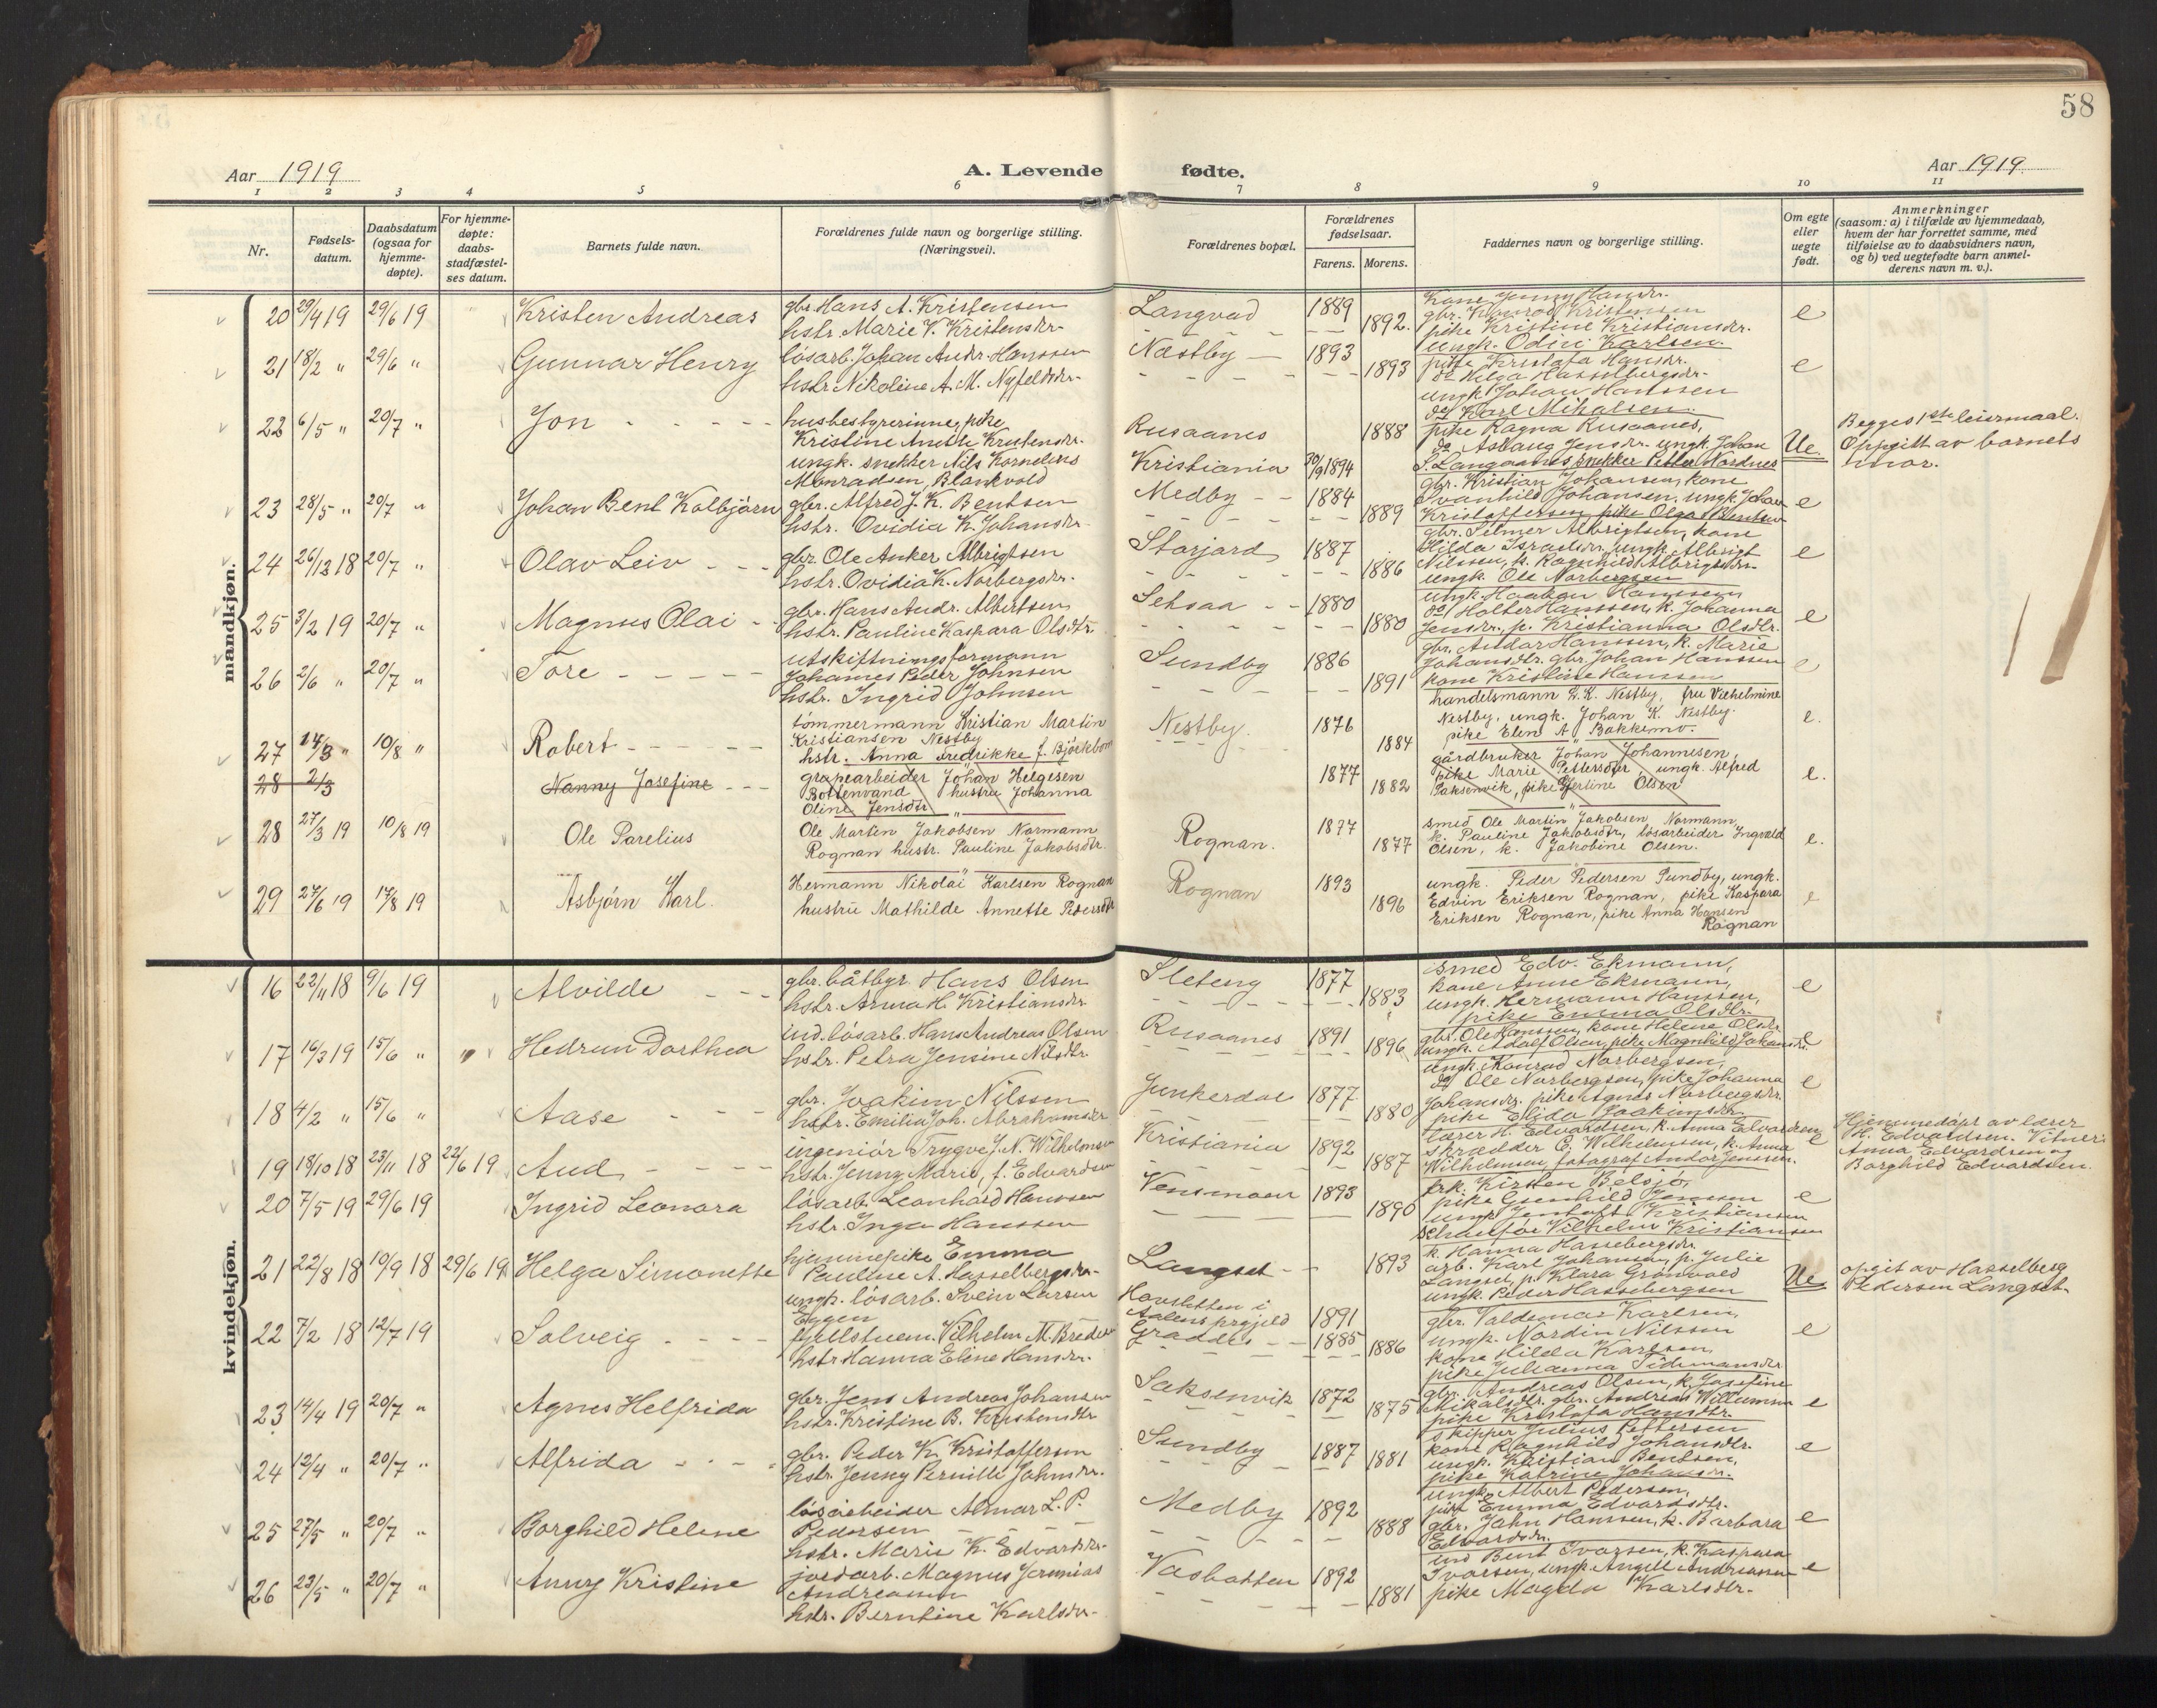 58
Aar 1919
A. Levende fødte.
Aar 1919
1 2 3 4 5 6 7 8 9 10 11
Nr.
Fødsels-
datum.
Daabsdatum
(ogsaa for
hjemme-
døpte).
For hjemme-
døpte:
daabs-
stadfæstel-
ses datum.
Barnets fulde navn.
Forældrenes fulde navn og borgerlige stilling.
(Næringsvei).
Forældrenes bopæl.
Forældrenes
fødselsaar.
Farens. Morens.
Faddernes navn og borgerlige stilling.
Om egte
eller
uegte
født.
Anmerkninger
(saasom: a) i tilfælde av hjemmedaab,
hvem der har forrettet samme, med
tilføielse av to daabsvidners navn,
og b) ved uegtefødte barn anmel-
derens navn m. v.).
mandkjøn.
20 29/4 19 29/6 19 Kristen Andreas
gbr. Hans A. Kristensen
hstr. Marie V. Kristensdr.
Langvad 1889 1892.
Kone Jenny Hansdr.
gbr. Konrad Kristensen
pike Kristine Kristiansdr.
ungk. Odin Karlsen.
e
21 18/2 " 29/6 " Gunnar Henry
løsarb. Johan Andr. Hanssen
hstr. Nikoline A. M. Nyfeldsdr.
Næstby 1893 1893
pike Kristofa Hansdr.
do Helga Hasselbergsdr.
ungk. Johan Hanssen
do Karl Mikalsen.
e
22 6/5 " 20/7 " Jon
husbestyrerinne, pike
Kristine Anette Kristensdr.
ungk. snekker Nils Kornelius
Monradsen, Blankvold
Rusaanes 1888
Kristiania 30/9 1894
pike Ragna Rusaanes,
do Aslaug Jensdr. ungk. Johan
S. Langaanes snekker Petter Nordnes
Ue.
Begges 1ste leiermaal.
Oppgitt av barnets
mor.
23 28/5 " 20/7 " Johan Bent Kolbjørn
gbr. Alfred J. K. Bentsen
hstr. Ovidia K. Johansdr.
Medby 1884 1889
gbr. Kristian Johansen, kone
Svanhild Johansen, ungk. Johan
Kristoffersen, pike Olga Bentsen
e
24 26/12 18 20/7 " Olav Leiv
gbr. Ole Anker Albrigtsen
hstr. Ovidia K. Norbergsdr.
Storjord 1887 1886
gbr. Hilmer Albrigtsen, kone
Hilda Israelsdr. ungk. Albrigt
Nilssen, k. Ragnhild Albrigtsdr.
ungk. Ole Norbergsen
e
25 3/2 19 20/7 " Magnus Olai
gbr. Hans Andr. Albertsen
hstr. Pauline Kaspara Olsdtr.
Setsaa 1880 1880
ungk. Haakon Hanssen,
do Holter Hanssen, k. Johanna
Jensdr., p. Kristianna Olsdtr.
e
26 2/6 " 20/7 " Tore
utskiftningsformann
Johannes Peder Johnsen
hstr. Ingrid Johnsen
Sundby 1886 1891
gbr. Andor Hanssen, k. Marie
Johansdtr. gbr. Johan Hanssen
kone Kristine Hanssen
e
27 14/3 " 10/8 " Robert
tømmermann Kristian Martin
Kristiansen Nestby
hstr. Anna Fredrikke f. Bjørkebom
Nestby. 1876 1884
handelsmann K. K. Nestby, fru Vilhelmine
Nestby, ungk. Johan K. Nestby.
pike Elen A. Bakkemo.
e.
28 2/3 Nanny Josefine
grapearbeider Johan Helgesen
Bottenvand hustru Johanna
Oline Jensdtr
1877 1882
gårdbruker Johan Johannesen,
pike Marie Pettersdtr, ungk. Alfred
Saksenvik, pike Hjertine Olsen
e.
28 27/3 19 10/8 19 Ole Parelius
Ole Martin Jakobsen Normann
Rognan hustr. Pauline Jakobsdtr.
Rognan. 1877 1877
smed Ole Martin Jakobsen Normann,
k. Pauline Jakobsdtr, løsarbeider Ingvald
Olsen, k. Jakobine Olsen.
e.
29 27/6 19 17/8 19 Asbjørn Karl.
Hermann Nikolai Karlsen Rognan
hustru Mathilde Annette Pedersdtr
Rognan 1893 1896
ungk. Peder Pedersen Sundby, ungk.
Edvin Eriksen Rognan, pike Kaspara
Eriksen Rognan, pike Anna Hansen
Rognan
e
kvindekjøn.
16 22/11 18 9/6 19 Alvilde
gbr. båtbygr. Hans Olsen
hstr. Anna H. Kristiansdr.
Sleteng 1877 1883
smed Edv. Ekmann,
kone Anne Ekmann,
ungk. Hermann Hanssen,
pike Emma Olsdtr.
e
17 16/3 19 15/6 " Hedrun Dorthea
ind. løsarb. Hans Andreas Olsen
hstr. Petra Jensine Nilsdtr.
Rusaanes 1891 1896
gbr. Ole Hanssen, kone Helene Olsdr.
ungk. Adolf Olsen, pike Magnhild Johansdr.
e
18 4/2 " 15/6 " Aase
gbr. Joakim Nilssen
hstr. Emilia Joh. Abrahamsdr
Junkerdal 1877 1880
ungk. Konrad Norbergsen,
do Ole Norbergsen, pike Johanna
Johansdr. pike Agnes Norbergsdr.
pike Elida Joakimsdr.
e
19 18/10 18 23/11 18 22/6 19 Aud
ingeniør Trygve J. N. Wilhelmsen
hstr. Jenny Marie, f. Edvardsen
Kristiania 1892 1887
lærer H. Edvardsen, k. Anna Edvardsen,
skrædder C. Wilhelmsen, k. Anna
Wilhelmsen, fotograf Andor Jenssen.
e
Hjemmedøpt av lærer
H. Edvardsen. Vitner:
Anna Edvardsen og
Borghild Edvardsen.
20 7/5 19 29/6 19 Ingrid Leonora
løsarb. Leonhard Hanssen
hstr. Inga Hanssen
Vensmoen 1893 1890
frk. Kirsten Belsjø,
pike Gunhild Jenssen
ungk. Jentoft Kristiansen
Vilhelm Kristiansen
e
21 22/8 18 19/9 18 29/6 19 Helga Simonette
hjemmepike Emma
Pauline A. Hasselbergsdr.
ungk. løsarb. Svein Larsen
Eggen
Langset 1893
Havsletten i
Aalens prgjeld 1891
k. Hanna Hassebergsdr.
arb. Karl Johansen, p. Julie
Langset, p. Klara Grønvold
ungk. Peder Hassebergsen
Ue.
opgit av Hasselberg
Pedersen Langset.
22 7/2 18 12/7 19 Solveig
fjellstuem. Vilhelm M. Bredesen
hstr Hanna Eline Hansdr.
Graddis 1885 1886
gbr. Valdemar Karlsen,
ungk. Nordin Nilssen
kone Hilda Karlsen,
pike Julianna Tidemansdr
e
23 14/4 19 20/7 " Agnes Helfrida
gbr. Jens Andreas Johansen
hstr. Kristine B. Kristensdtr
Saksenvik 1872 1875
gbr. Andreas Olsen, k. Josefine
Mikalsdtr. gbr. Andreas Willumsen
pike Kristofa Hansdtr.
e
24 12/4 " 20/7 " Alfrida
gbr. Peder K. Kristoffersen
hstr. Jenny Pernille Johnsdr.
Sundby 1887 1881
skipper Julius Pettersen
kone Ragnhild Johansdtr.
ungk. Kristian Bentsen,
pike Katrine Johansdr.
e
25 27/5 " 20/7 " Borghild Helene
løsarbeider Almar L. P.
Pedersen
hstr. Marie K. Edvardsdr.
Medby 1892 1888
ungk. Albert Pedersen,
pike Emma Edvardsdtr.
gbr. John Hanssen, k. Barbara
Edvardsdr.
e
26 23/5 " 20/7 " Anny Kristine
jordarb. Magnus Jeremias
Andreassen
hstr. Berntine Karlsdr.
Vasbotten 1892 1881
ind Bent Ivarsen, k. Kaspara
Ivarsen, ungk. Angell Andreassen
pike Magda Karlsdtr.
e